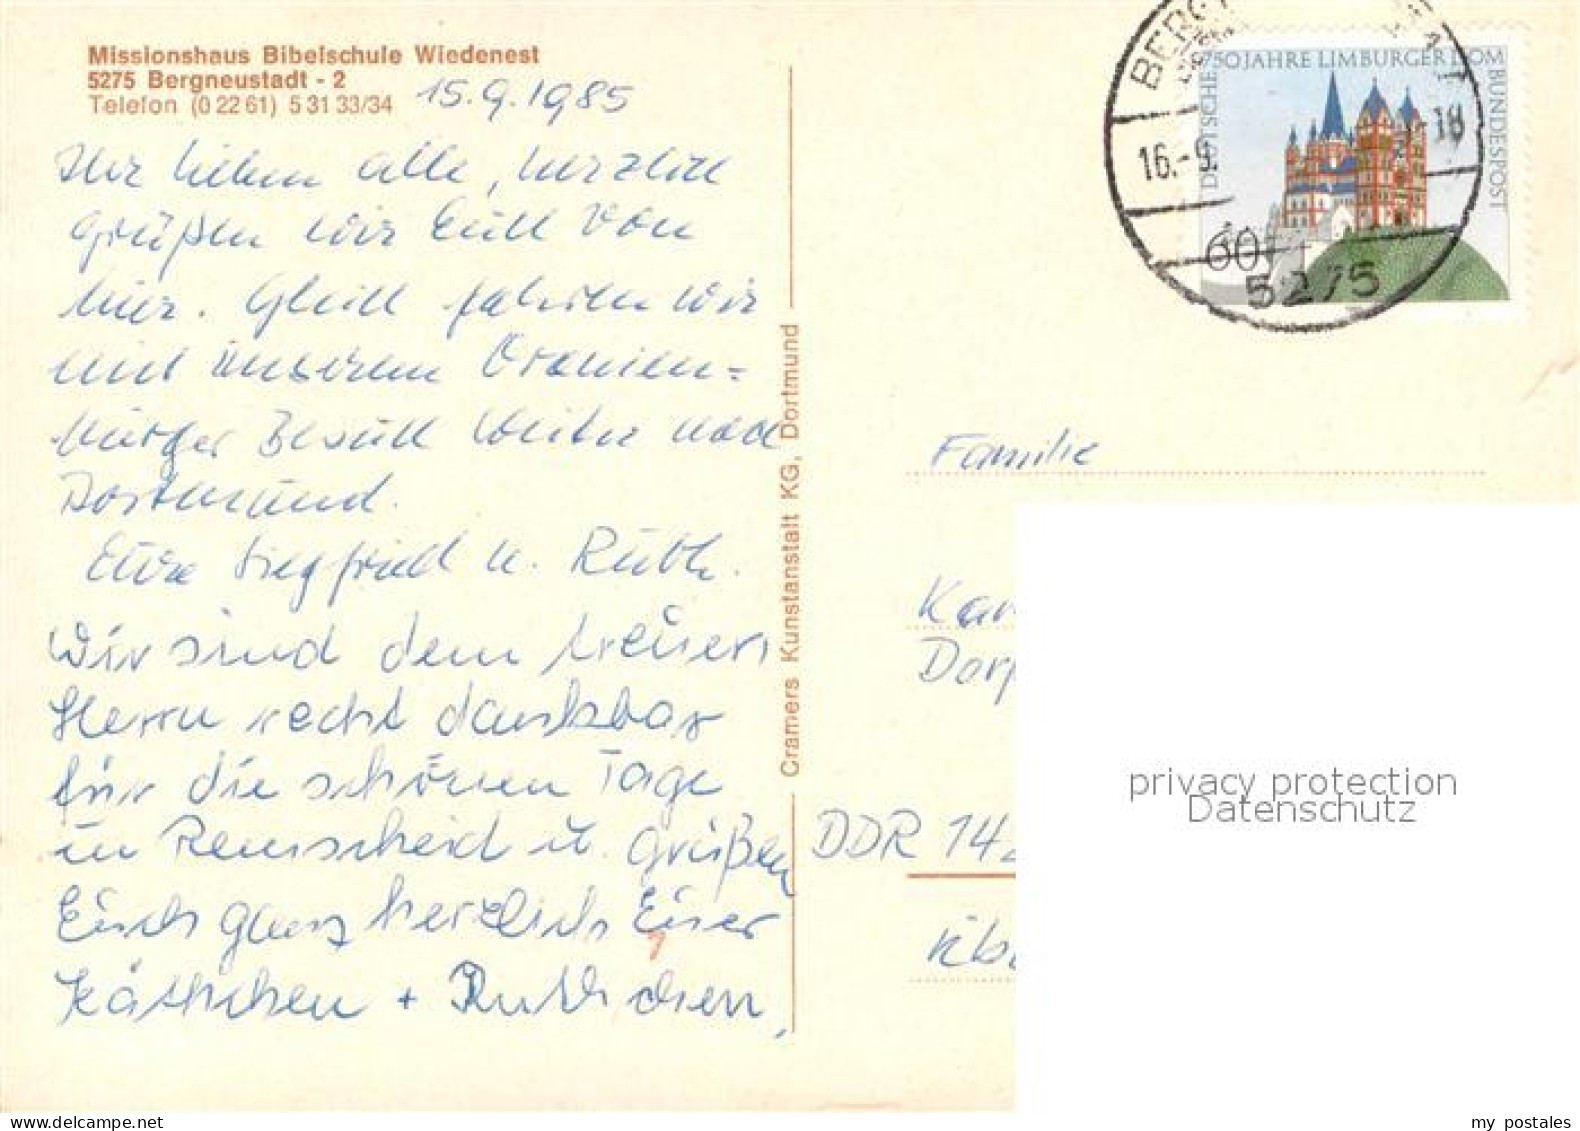 Missionshaus Bibelschule Wiedenest
5275 Bergneustadt - 2
Telefon (0 22 61) 5 31 33/34
15.9.1985
Ihr lieben alle, herzlich
grüßen wir Euch von
hier. Gleich fahren wir
mit unserem Oranien=
burger Besuch weiter nach
Dortmund.
Eure Siegfried u. Ruth.
Wir sind dem treuen
Herrn recht dankbar
für die schönen Tage
in Remscheid u. grüßen
Euch ganz herzlich Euer
Käthchen + Ruthchen,
Cramers Kunstanstalt KG, Dortmund
750 JAHRE LIMBURGER DOM
DEUTSCHE BUNDESPOST
60
BERG
16.-9.
-18
5275
Familie
Kar
Dorf
DDR 142
üb
privacy protection
Datenschutz
my postales